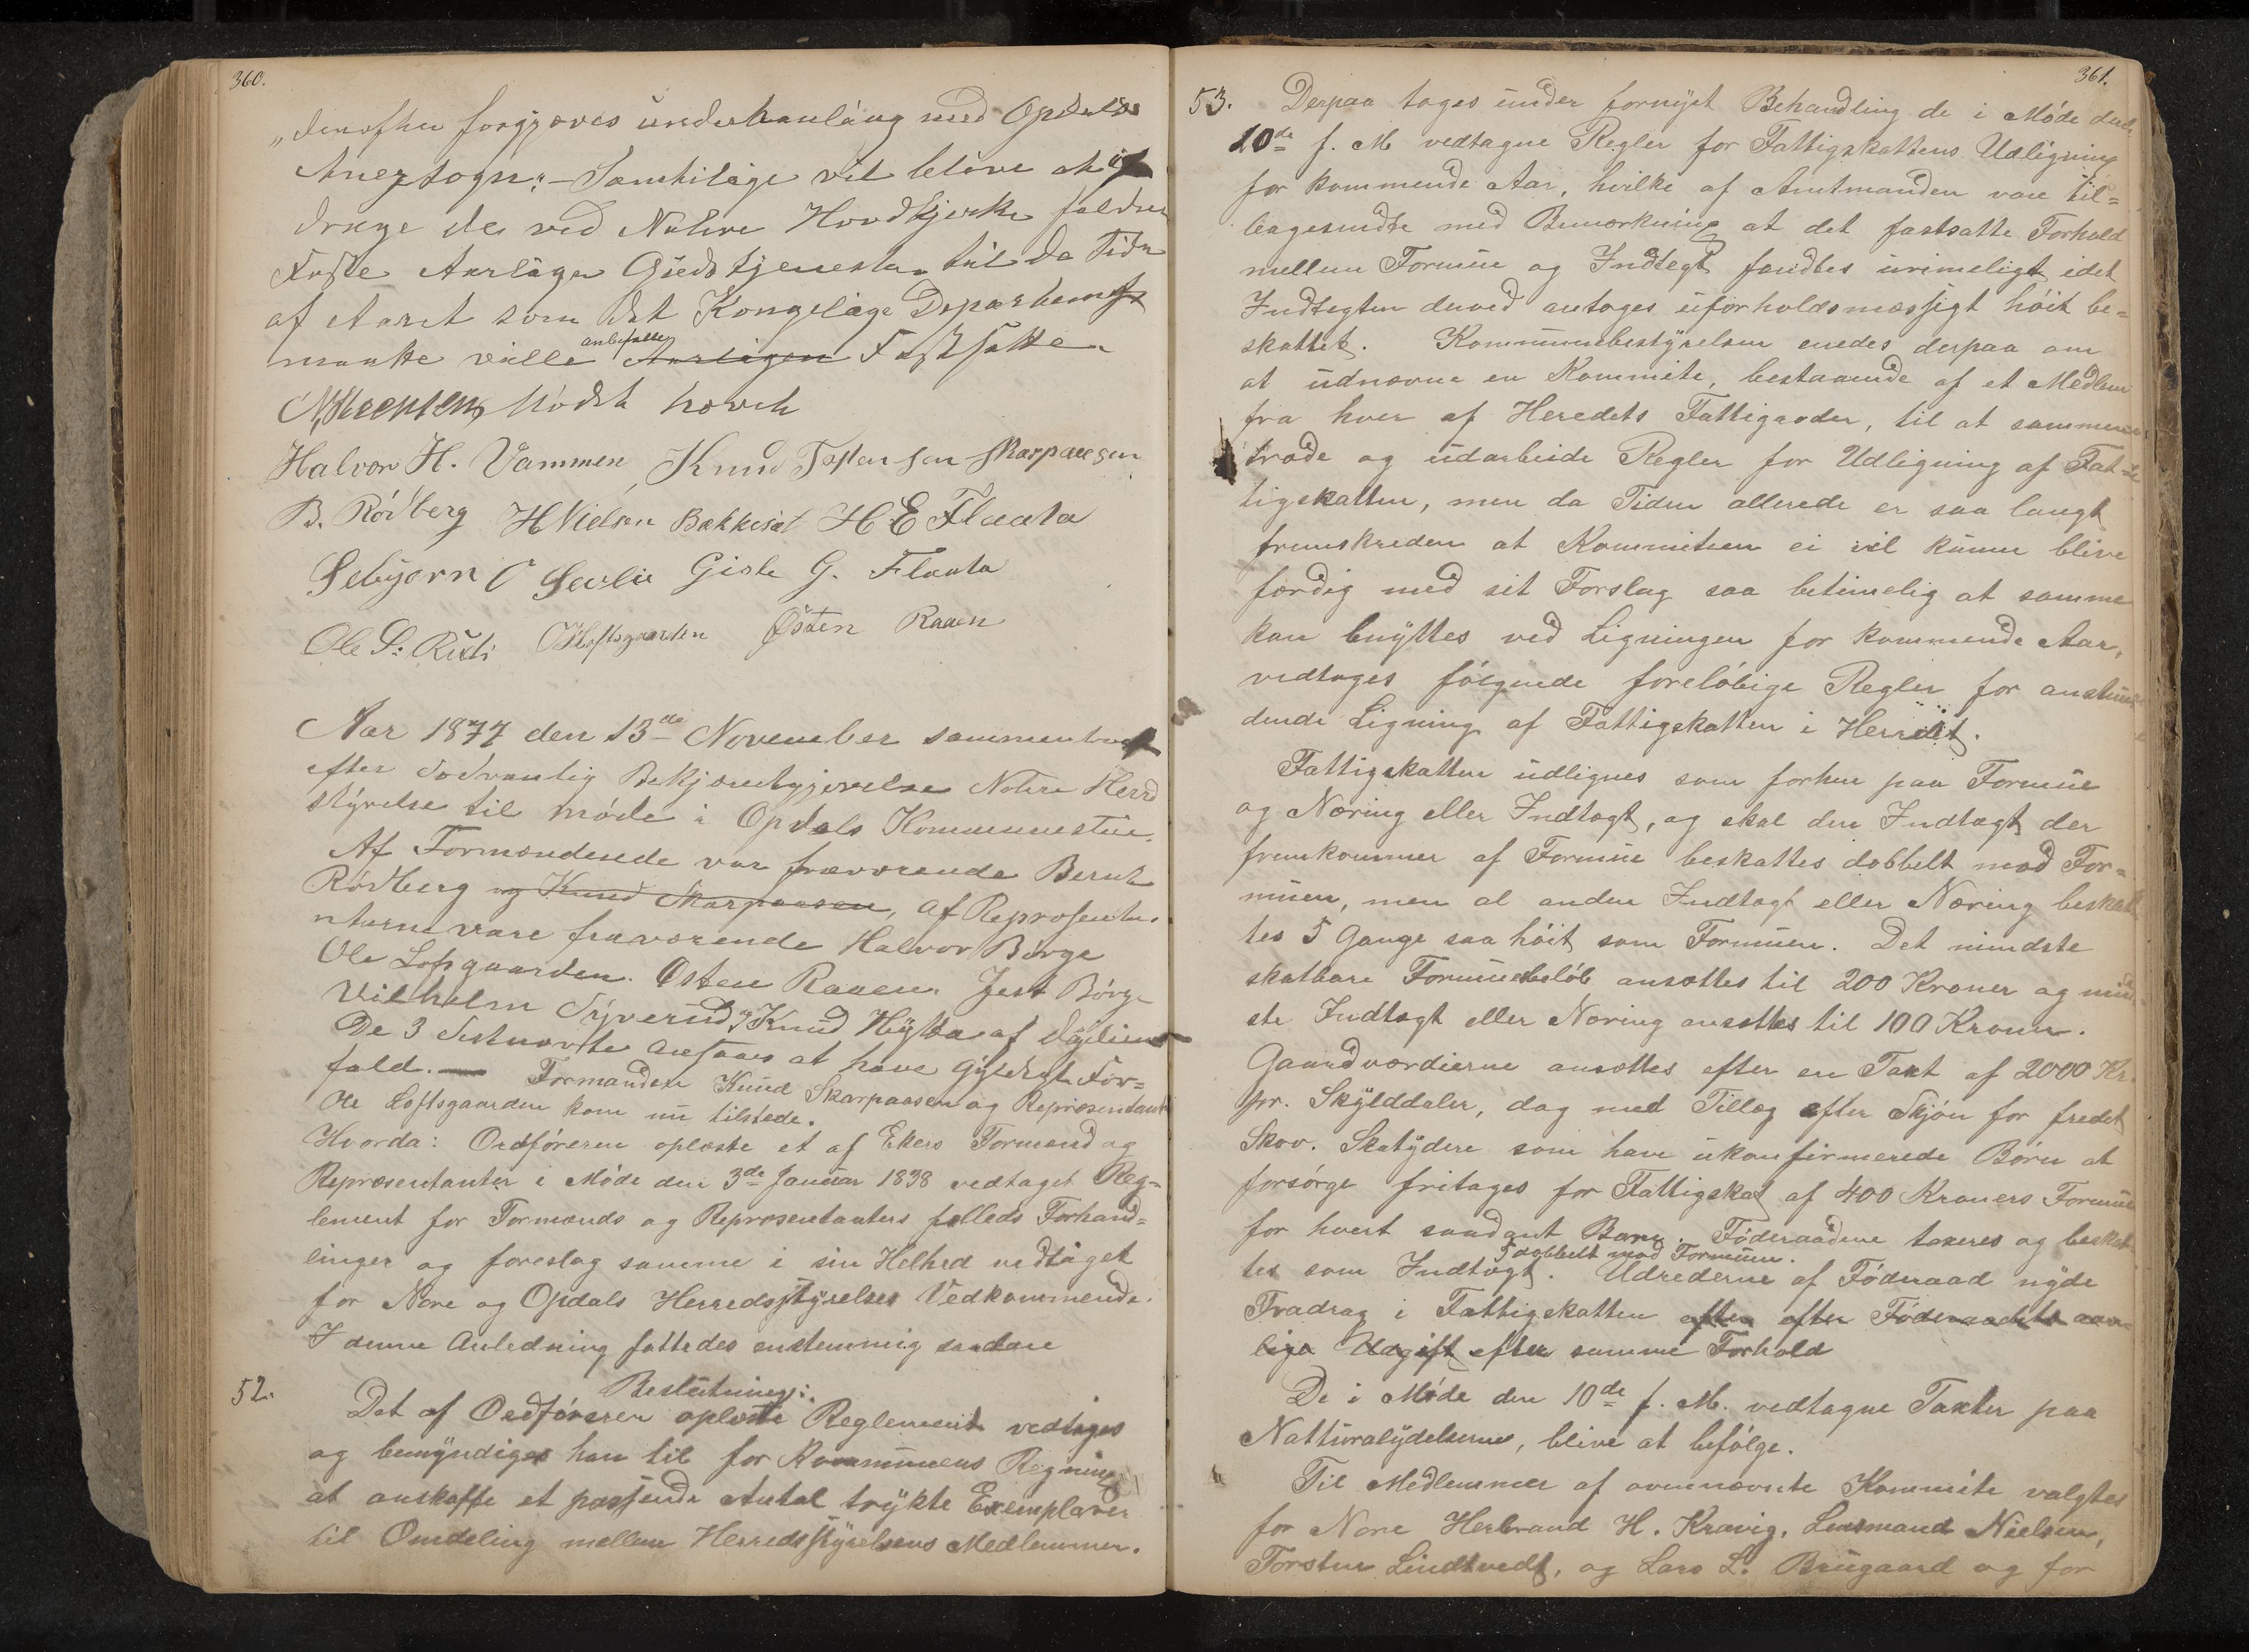 360.
forgjæves underhanláng med Opdals
Anexsogn:– Samtilige vil blive at
drage de ved Nutire Hovdkjerke
Faste Aarlige til de Tider
af Aaret som det Kongelige Departement
maatte ville anbefalle Aarligen Fastsette.
Halvor H. Vammen, Knud Tostensen Skarpaasen
B. Rödberg HNielsen Bakkeset H E Flaata
Sebjørn Sevlie Giste G. Flaata
Ole S. Rudi OLoftsgaarden Østen Raaen
Aar 1877 den 13de November sammentraadt
efter Sedvanlig Bekjendtgjørelse Notere Herred
styrelse til møde i Opdals Kommunestue.
Af Formændende var fraværende Bernt
Rødberg og Knud Skarpaasen, af Represente-
nterne vare fraværende Halvor Børge
Ole Loftsgaarden. Østen Raaen. Jest Børge
Vilhelm Syverud og Knud Hÿtta af Dagli
De 3 Sistnævnte ansaaes at have gÿldigt For=
fald. — Formanden Knud Skarpaasen og Repræsentant
Ole Loftsgaarden kom nu tilstede.
Hvorda: Ordføreren oplæste et af Ekers Formænd og
Repræsentanter i Møde den 3de Januar 1838 vedtaget Reg=
lement for Formænds og Repræsentanters fælleds Forhand=
linger og foreslog samme i sin Helhed vedtaget
for Nore og Opdals Herredsstÿrelses Vedkommende.
I denne Anledning fattedes enstemmig saadan
Beslutning:
52. Det af Ordføreren oplæste Reglement vedtages
og bemÿndiges han til for Kommunens Regning
at anskaffe et passende Antal trÿkte Exemplarer
til Omdeling mellem Herredsstÿrelsens Medlemmer.
361.
53. Derpaa toges under fornÿet Behandling de i Møde den
10de f. M vedtagne Regler for Fattigskattens Udligning
for kommende Aar, hvilke af Amtmanden vare til=
bagesendte med Bemærkning at det fastsatte Forhold
mellem Formue og Indtegt fandtes urimeligt idet
Indtegten derved antages uforholdsmæssigt høit be=
skattet. Kommunebestÿrelsen enedes derpaa om
at udnævne en Kommite, bestaaende af et Medlem
fra hver af Heredets Fattigroder, til at sammen
træde og udarbeide Regler for Udligning af Fat=
tigskatten, men da Tiden allerede er saa langt
fremskreden at Kommiteen ei vil kunne blive
færdig med sit Forslag saa betimelig at samme
kan bnÿttes ved Ligningen for kommende Aar,
vedtoges følgende foreløbige Regler for anstun=
dende Ligning af Fattigskatten i Herredet.
Fattigskatten udlignes som forhen paa Formue
og Næring eller Indtægt, og skal den Indtægt der
fremkommer af Formue beskattes dobbelt mod For=
muen, men al anden Indtægt eller Næring beskat
tes 5 Gange saa høit som Formuen. Det mindste
skatbare Formuebeløb ansættes til 200 Kroner og mind
ste Indtægt eller Næring ansættes til 100 Kroner.
Gaardværdierne ansættes efter en Taxt af 2000 Kr.
pr. Skÿlddaler, dog med Tillæg efter Skjøn for fredet
Skov. Skatÿdere som have ukonfirmerede Børn at
forsørge fritages for Fattigskat af 400 Kroners Formue
for hvert saadant Barn. Føderaadene taxeres og beskat
tes som Indtægt. 5 dobbelt mod Formuen. Udrederne af Føderaad nÿde
Fradrag i Fattigskatten efter efter Føderaadets aar=
lige Udgift efter samme Forhold
De i Møde den 10de f. M. vedtagne Taxter paa
Natturalÿdelserne, blive at befølge.
Til Medlemmer af ovennævnte Kommite valgtes
for Nore Herbrand H. Kravig, Lensmand Nielsen,
Torsten Lindtvedt, og Lars L. Brugaard og for